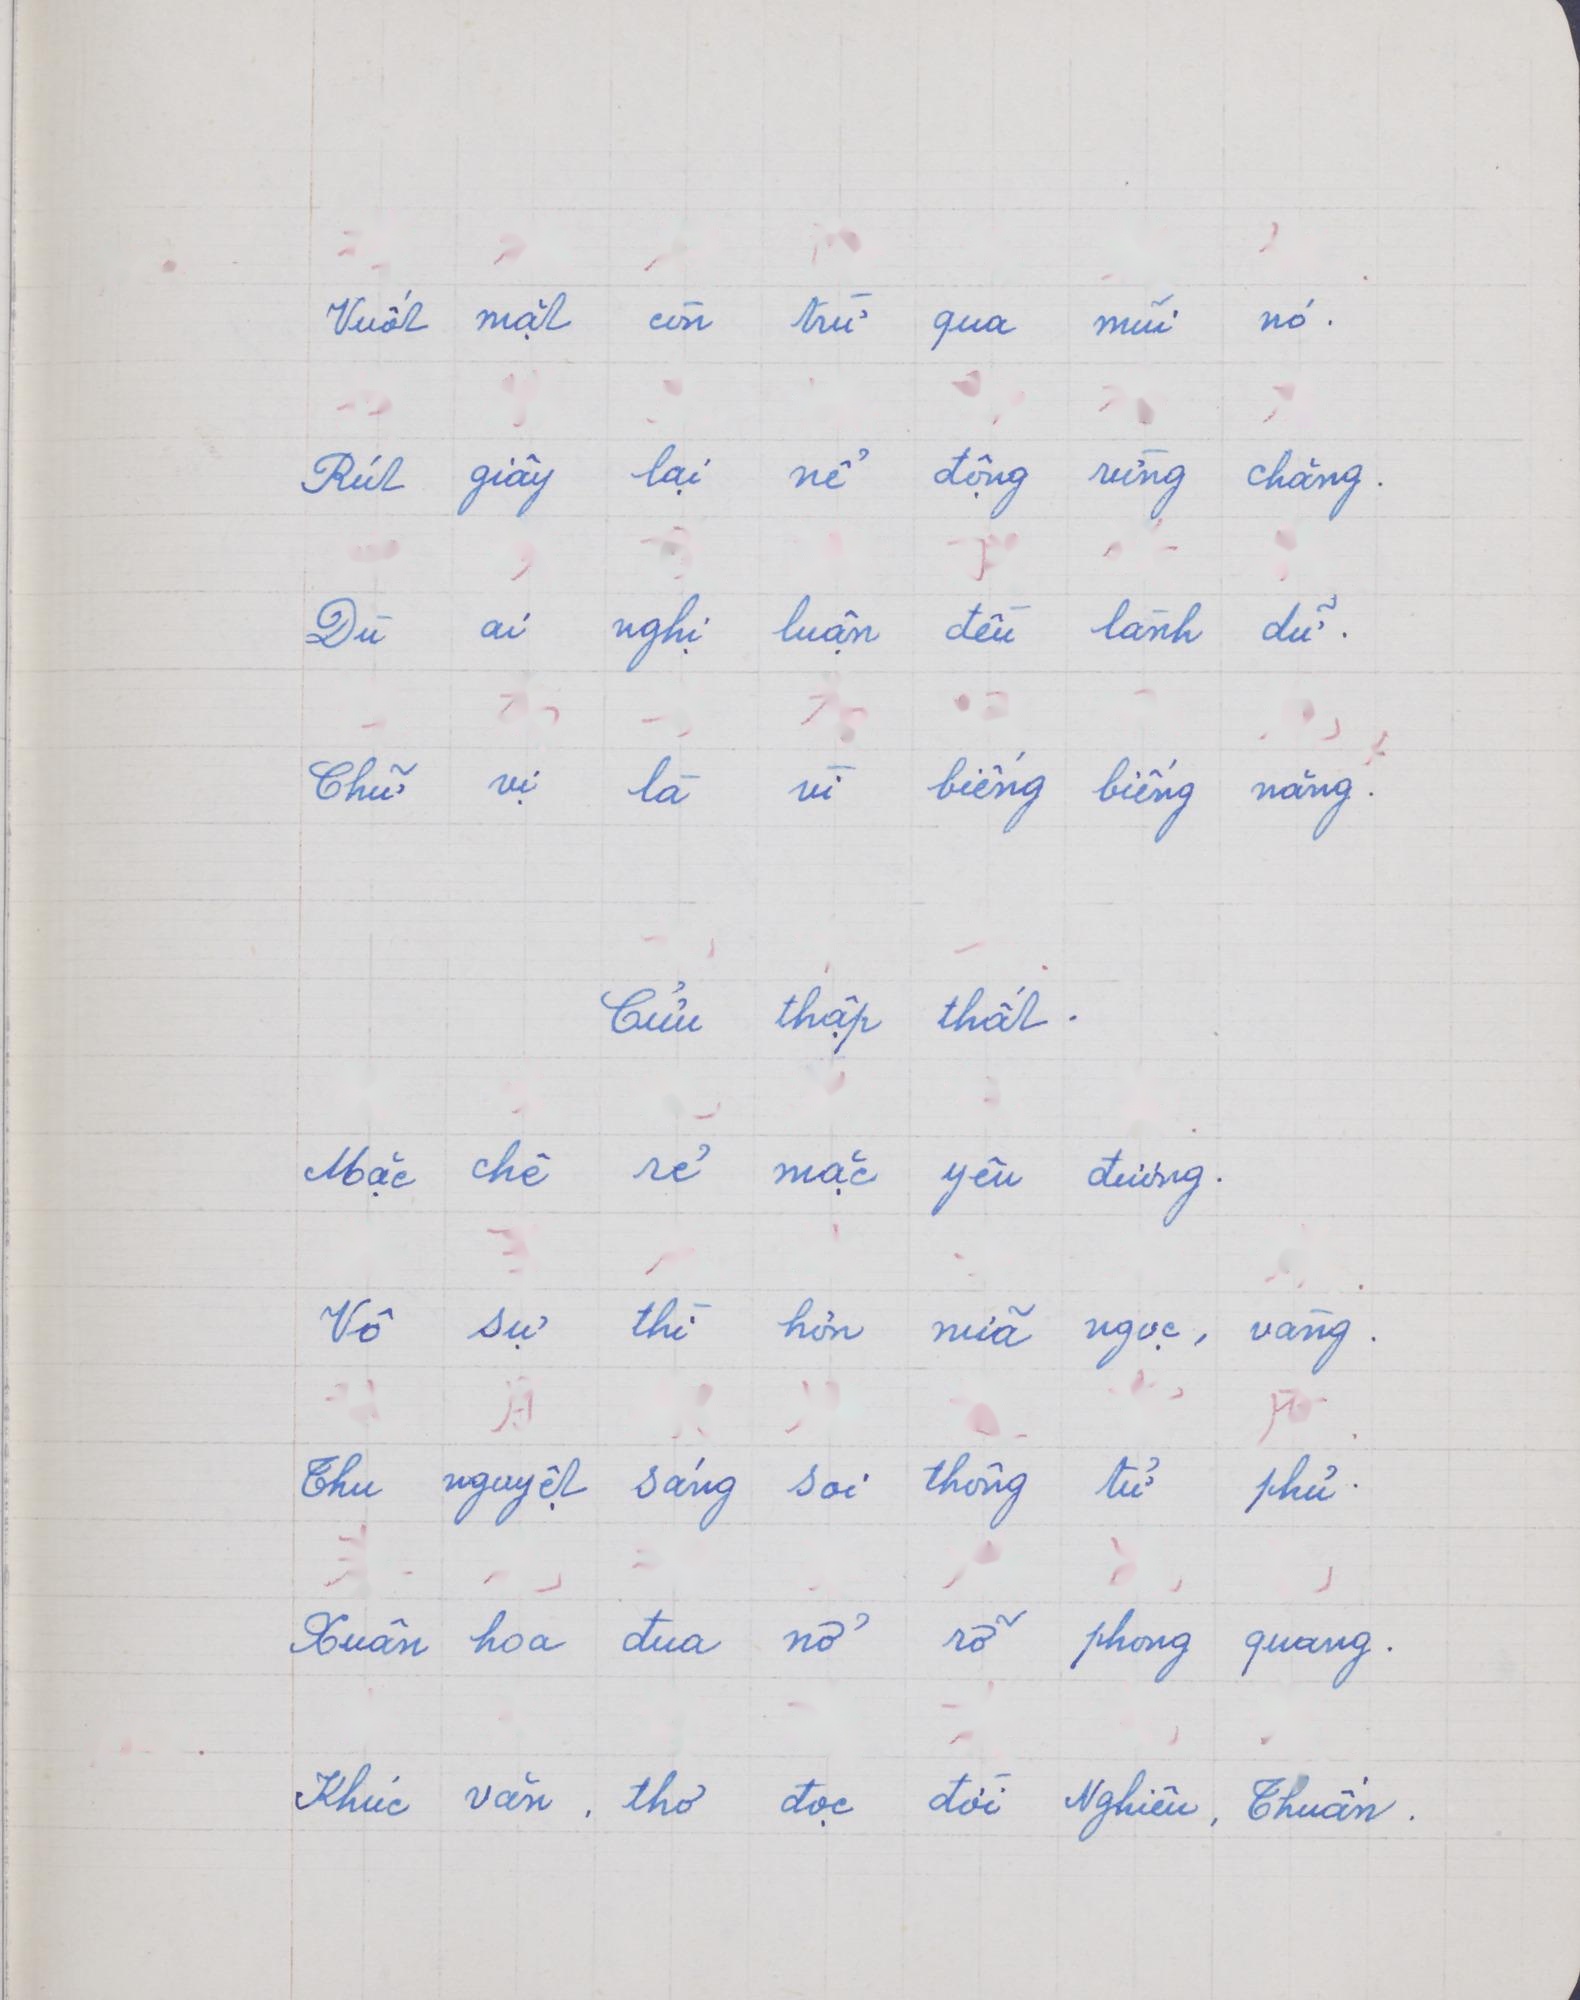 Vuốt mặt còn trừ qua mũi nó.
Rút giây lại nể động rừng chăng.
Dù ai nghị luận đều lành dữ.
Chữ vị là vì biếng biếng năng.
Cửu thập thất.
Mặc chê rẻ mặc yêu đương.
Vô sự thì hơn nữa ngọc, vàng.
Thu nguyệt sáng soi thông tử phủ.
Xuân hoa đua nở rỡ phong quang.
Khúc văn, thơ đọc đời Nghiêu, Thuấn.